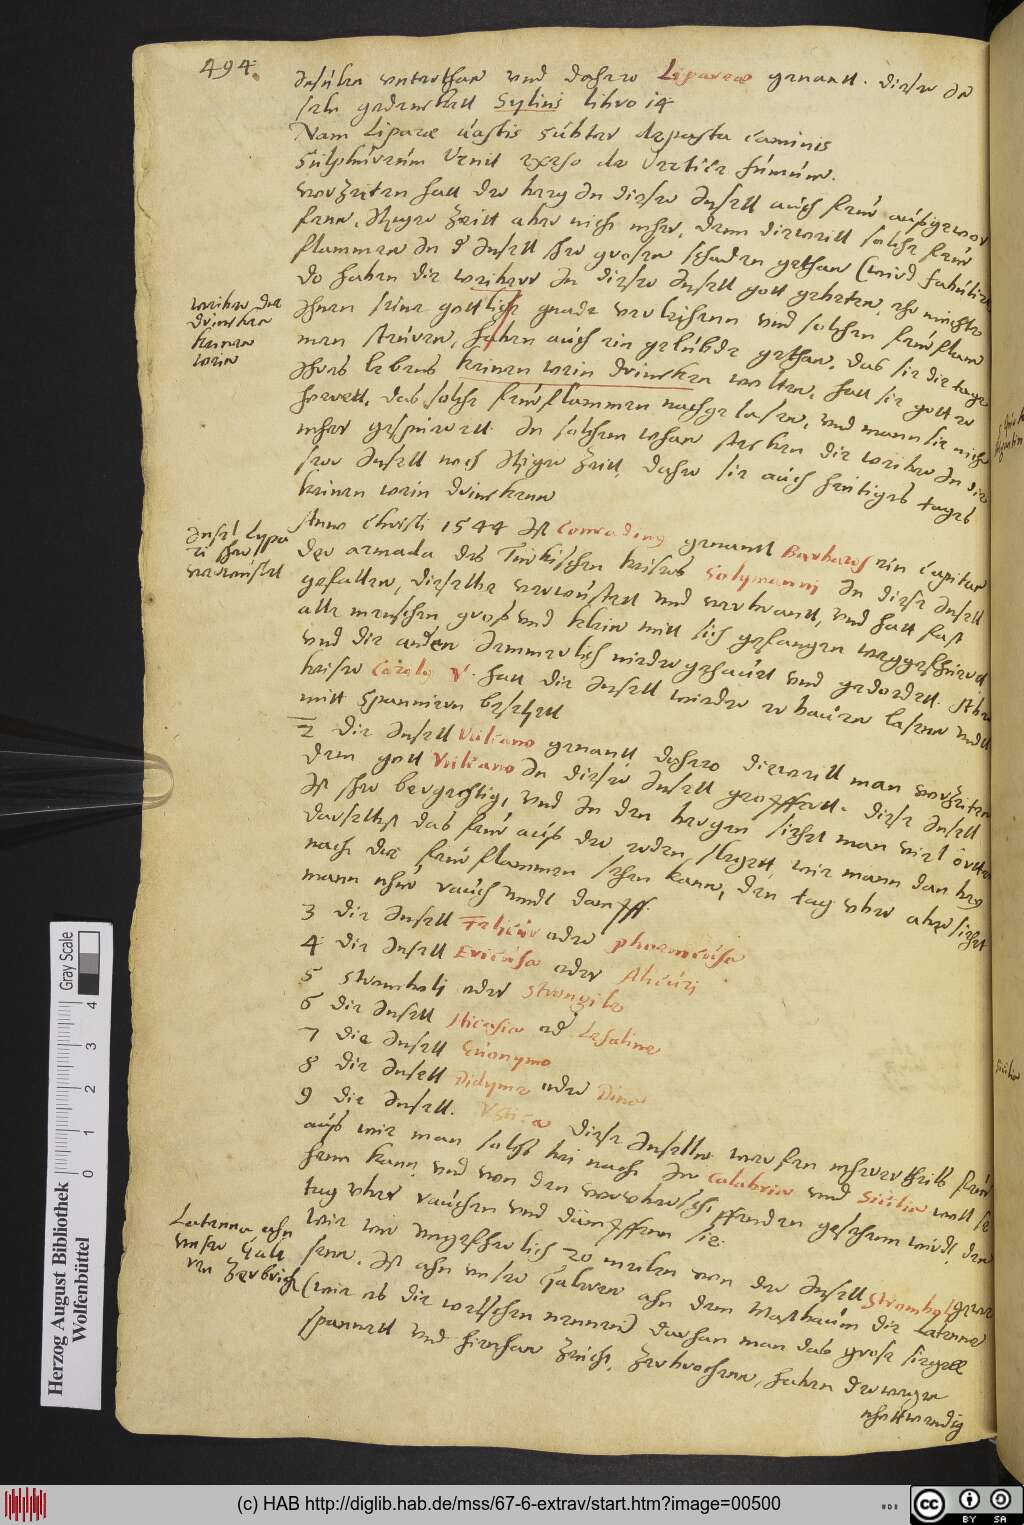 494.
Insulen unterthan und dahero Liparae genantt. dieser In
seln gedencktt Sylius libro 14
Nam Lipare uastis subter depasta caminis
Sulphureum Vemit exeso de Vertice fumum.
vorzeiten hatt der berg In dieser Insell auch feur außgewor
fenn, Itziger Zeitt aber nich mher, dann dieweill solche feur
flammen In d' Insell sher grosen schaden gethan
do haben die weiber In dieser Insell gott gebeten, ehr mochte
Ihnen seine gottliche gnade verleihenn und solchen feurflam
men steuren, haben auch ein gelübde gethan, das sie die tage
Ihres lebens keinen wein drincken wolten, hatt sie gott er
horett, das solche feurflammen nachgelasen, und mann sie nich
mher gespürett. In solchem whan stecken die weiber In die
ser Insell noch Itziger Zeitt, dahero sie auch heutiges tages
keinen wein drinckenn
weiber die
drincken
keinen
wein
Anno Christi 1544 Ist Conradinus genantt Barbaros ein Capitan
der armada des Türkischen keisers Solymanni In diese Insell
gefallen, dieselbe verwüstett und verbrantt, und hatt fast
alle menschen groß und klein mitt sich gefangen weggefhürett
und die andern Jemmerlich nieder gehauen und gedodett. Aber
keiser Carolo V. hatt die Insell wieder erbauen lasenn undt
mitt Spanniern besetzett
Insel Lypa
ri sher
verwustet
2 die Insell Vulcano genantt dahero dieweill man vorzeiten
dem gott Vulcano In dieser Insell geopffertt. diese Insell
Ist sher bergechtig, und In den bergen siehet man viel örtter
daselbst das feur auß der erden steigett, wie mann dan hey
nach die feurflammen sehen kann, den tag uber aber siehet
mann nhur rauch undt dampff.
3 die Insell Felicur oder phoenicusa
4 die Insell Ericusa oder Alicurj
5 Strombolj oder Strongile
6 die Insell Nicasia od' Lesaline
7 die Insell Euonymo
8 die Insell Didyme oder Dino
9 die Insell. Vstica diese Insellen werfen mherertheils feur
auß wie man solchs bei nacht In Calabria und Sicilia woll se
henn kann und von den voruberschiffenden gesehenn wirdt, den
tag uber rauchen und dampffenn sie.
wie wir ungefherlich 20 meilen von der Insell Strombolj gewe
senn, Ist ahn unser Galeren ahn dem Mastbaum die Latenne
(wie es die welschen nennen) daran man das grose siegell
spannett und hieran Zeucht, Zerbrochenn, haben derwegen
nhottwendig
Latenna ahn
unser Gale
ren Zerbrich
Herzog August Bibliothek
Wolfenbüttel
Gray Scale
0 1 2 3 4
(c) HAB http://diglib.hab.de/mss/67-6-extrav/start.htm?image=00500
cc BY SA